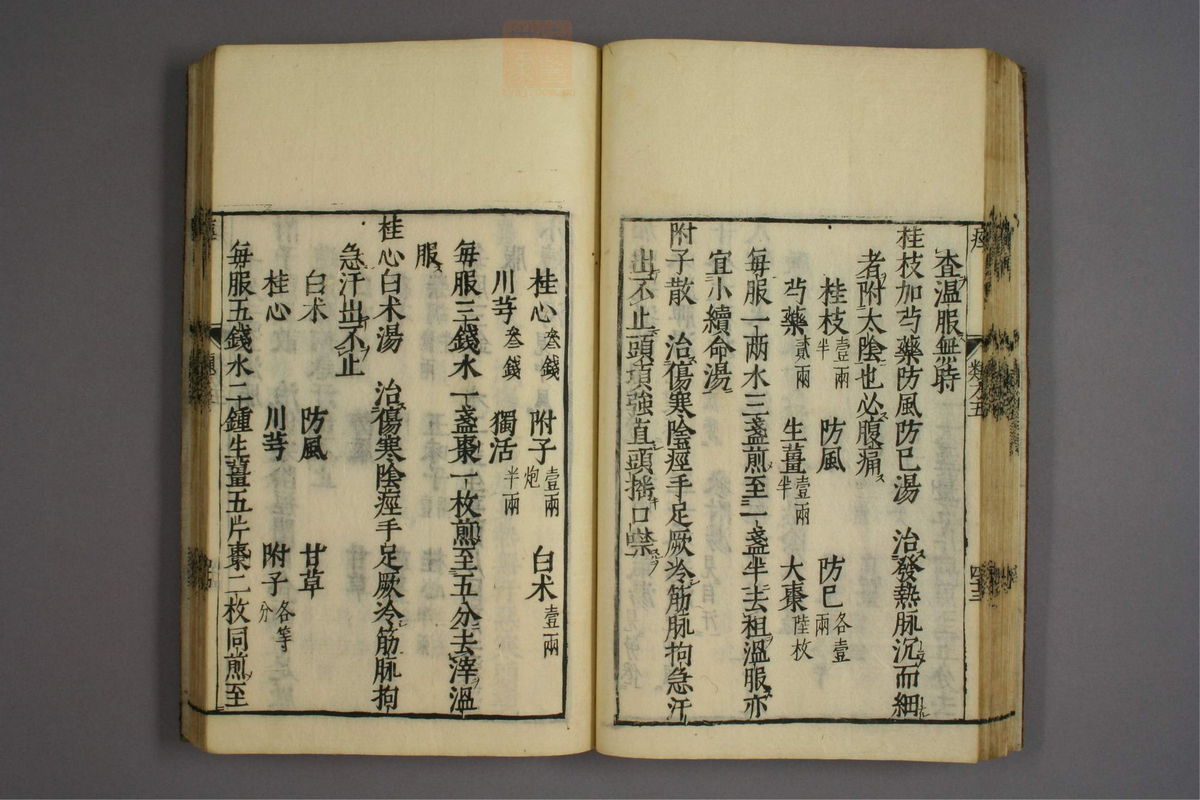 査温服無時
桂枝加芍藥防風防已湯　治發熱脉沉而細
者附太陰也必腹痛
桂枝壹兩半　防風　防已各壹兩
芍藥貳兩　生薑壹兩半　大棗陸枚
每服一兩水三盞煎至一盞半去柤溫服亦
宜小續命湯
附子散　治傷寒陰痓手足厥冷筋脉拘急汗
出不止頭項強直頭摇口噤
桂心叁錢　附子炮壹兩　白朮壹兩
川芎叁錢　獨活半兩
每服三錢水一盞棗一枚煎至五分去滓溫
服
桂心白朮湯　治傷寒陰痓手足厥冷筋脉拘
急汗出不止
白朮　防風　甘草
桂心　川芎　附子各等分
每服五錢水二鍾生薑五片棗二枚同煎至